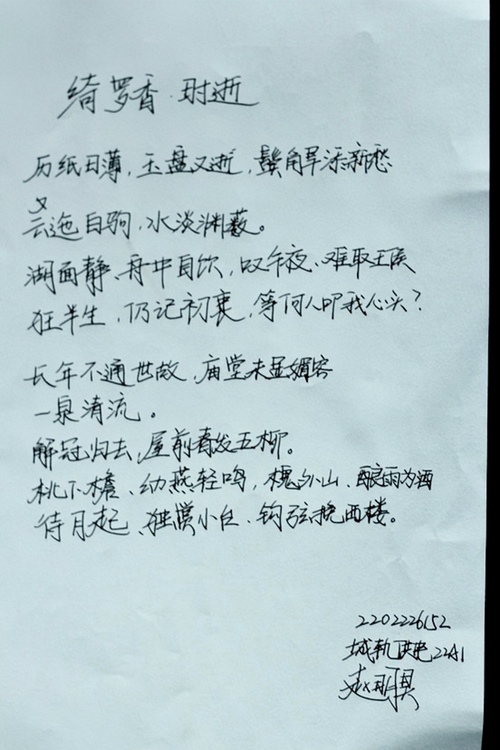 绮罗香·时逝
历纸日薄,玉盘又逝,鬓角早添新愁
云迤白驹,水淡渊薮。
湖面静、舟中自饮,叹午夜、难取王侯
狂半生,仍记初衷,等何人叩我心头?
长年不通世故,庙堂未显媚容
一泉清流。
解冠归去,屋前春发五柳。
桃下檐、幼燕轻鸣,槐外山、酿雨为酒
待月起、独赏小台、钩弦挽西楼。
2202226152
城轨供电2241
赵